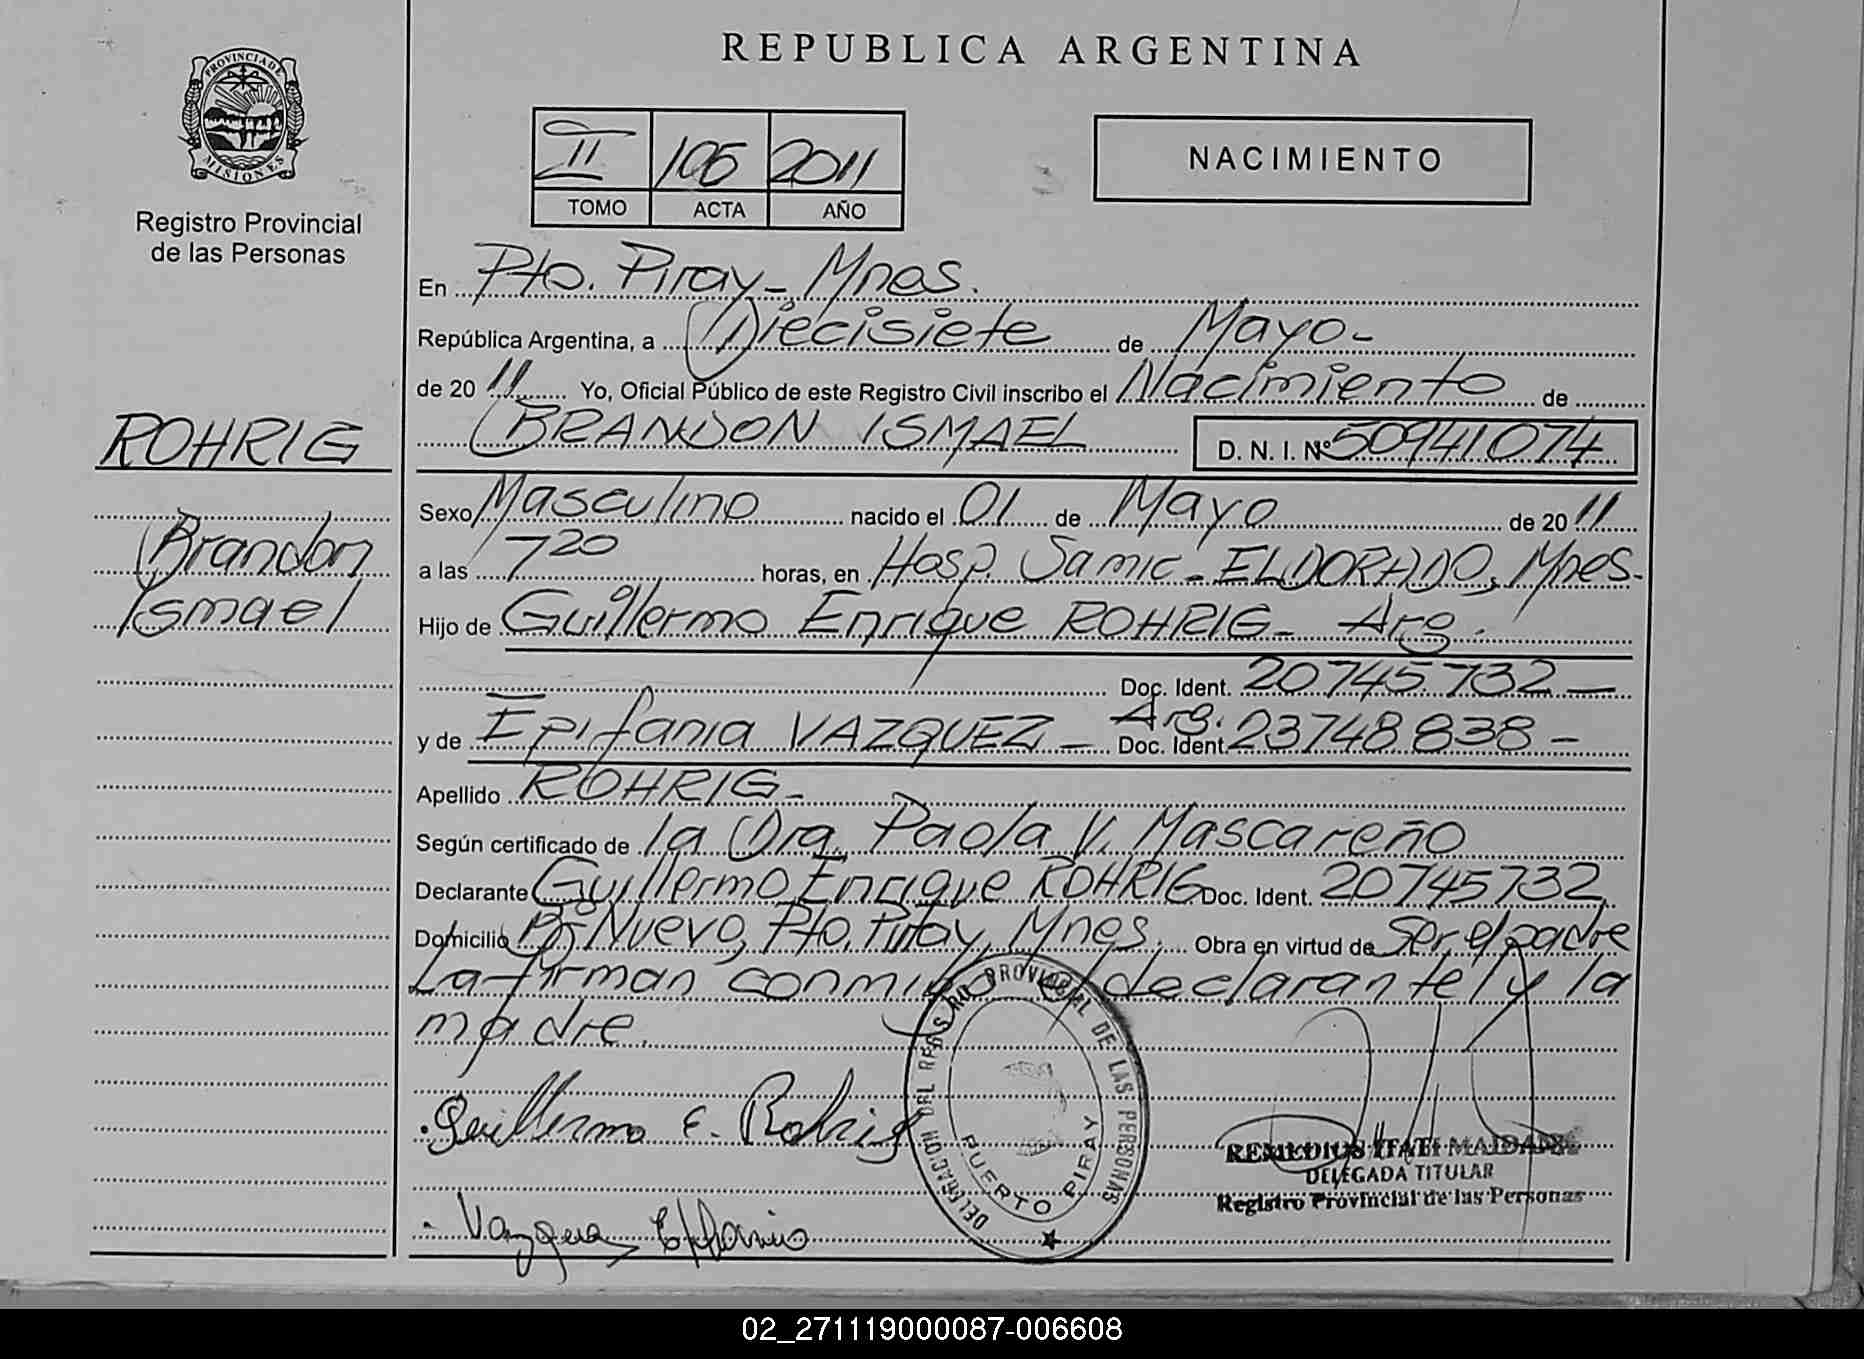 REPUBLICA ARGENTINA
PROVINCIA DE MISIONES
Registro Provincial
de las Personas
II 105 2011
TOMO ACTA AÑO
NACIMIENTO
En Pto. Piray - Mnes.
República Argentina, a Diecisiete de Mayo -
de 20 11 Yo, Oficial Público de este Registro Civil inscribo el Nacimiento de
BRANDON ISMAEL D. N. I. Nº 50941074
ROHRIG
Brandon
Ismael
Sexo Masculino nacido el 01 de Mayo de 20 11
a las 7 20 horas, en Hosp. Samic - ELDORADO, Mnes -
Hijo de Guillermo Enrique ROHRIG - Arg.
Doc. Ident. 20745732 -
y de Epifania VAZQUEZ - Arg. Doc. Ident. 23748838 -
Apellido ROHRIG -
Según certificado de la Dra. Paola V. Mascareño
Declarante Guillermo Enrique ROHRIG Doc. Ident. 20745732
Domicilio Bº Nuevo, Pto. Piray, Mnes. Obra en virtud de Ser el padre
La firman conmigo el declarante y la
madre.
Guillermo E. Rohrig
DELEGACION DEL REGISTRO PROVINCIAL DE LAS PERSONAS
PUERTO PIRAY
REMEDIOS ITATI
DELEGADA TITULAR
Registro Provincial de las Personas
Vazquez Epifania
02_271119000087-006608